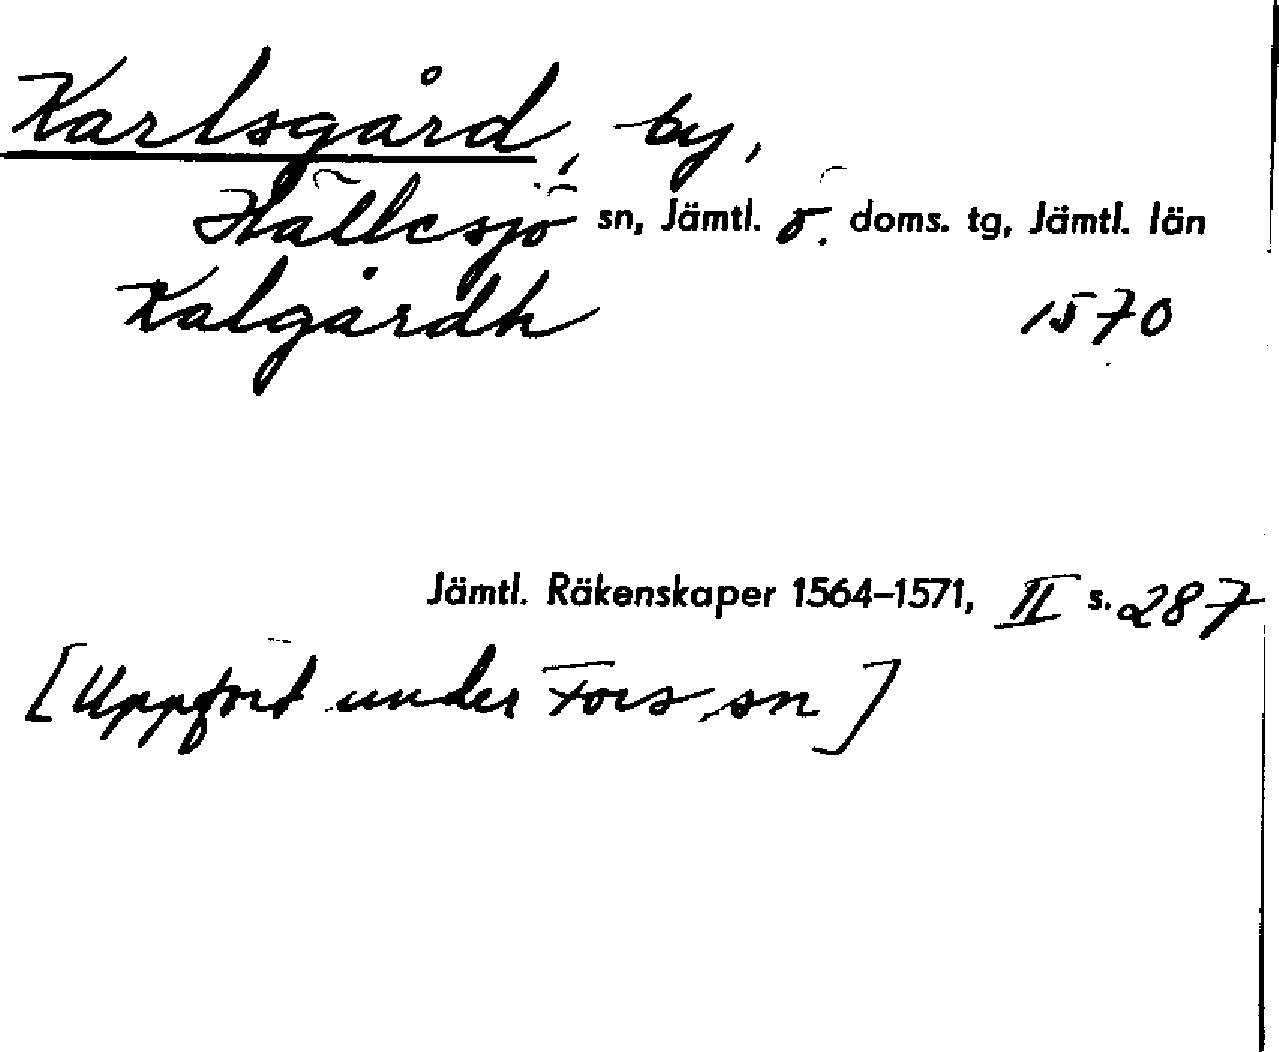 Karlsgård, by,
Hällesjö sn, Jämtl. ö. doms. tg, Jämtl. län
Kalgårdh 1570
Jämtl. Räkenskaper 1564–1571, II s. 287
[Uppförd under Fors sn]